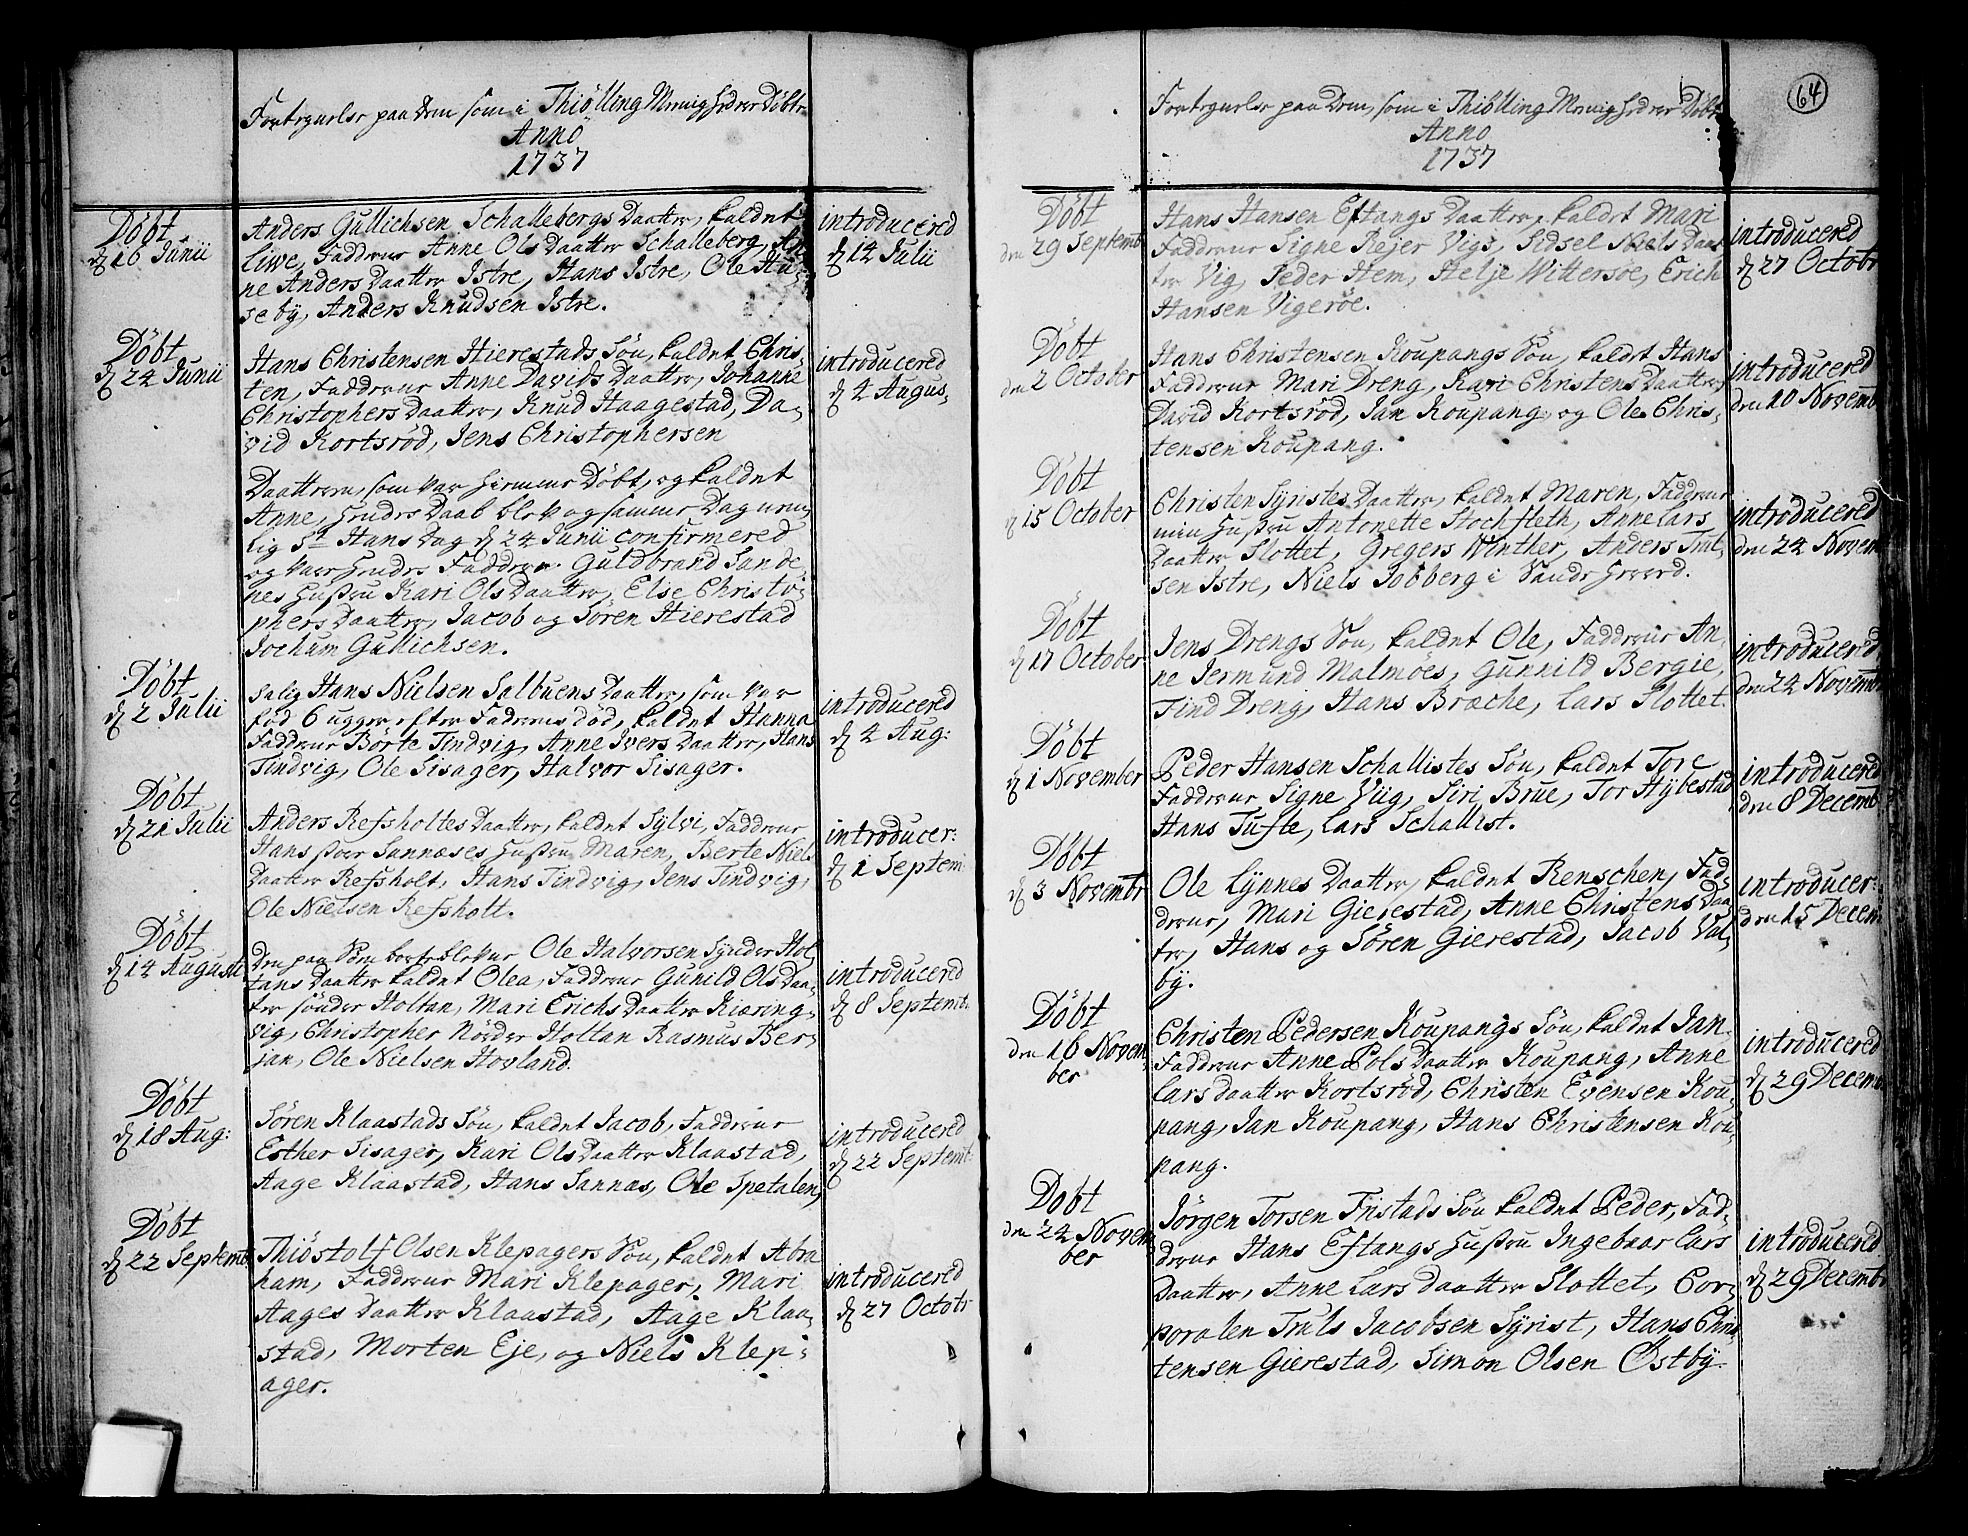 Fortegnelse paa Dem som i Thiölling Menighed er Döbte
Anno
1737
Döbt
d 16 Junii
Anders Gullichsen Schallebergs Daatter, kaldet
Liwe, Fadderne Anne Ols Daatter Schalleberg, An
ne Anders Daatter Istre, Hans Istre, Ole Hu-
seby, Anders Knudsen Istre.
introducered
d 14 Julii
Döbt
d 24 Junii
Hans Christensen Hierestads Sön, kaldet Chris-
ten, Fadderne Anne Davids Daatter, Johanne
Christophers Daatter, Knud Haagestad, Da-
vid Kortsröd, Jens Christophersen
introducered
d 4 Augus,
Daatteren, som var hiemme Döbt, og kaldet
Anne, hendes Daab blev og samme Dag nem-
lig St Hans Dag d 24 Junii confirmered
og var hendes Fadderne Guldbrand Sande-
nes Hustru Kari Ols Daatter, Else Christo-
phers Daatter, Jacob og Sören Hierestad
Jochum Gullichsen.
Döbt
d 2 Julii
Salig Hans Nielsen Salbuens Daatter, som var
föd 6 uger efter Faderens död, kaldet Hanna
Fadderne Börte Tindvig, Anne Ivers Daatter, Hans
Tindvig, Ole Sisager, Halvor Sisager.
introducered
d 4 Aug:
Döbt
d 21 Julii
Anders Refsholtes Daatter, kaldet Sylvi, Fadderne
Hans Sannæses Hustru Maren, Berte Niels
Daatter Refsholt, Hans Tindvig, Jens Tindvig,
Ole Nielsen Refsholt.
introducer:
d 1 Septem
Döbt
d 14 Augusti
Den paa Söen bortblevne Ole Halvorsen Synder Hol
tans Daatter kaldet Olea, Fadderne Gunild Ols Daa-
ter sönder Holtan, Mari Erichs Daatter Kiæring-
vig, Christopher Nörder Holtan Rasmus Ber-
jan, Ole Nielsen Hovland.
introducered
d 8 Septemb.
Döbt
d 18 Aug:
Sören Klaastads Sön, kaldet Jacob, Fadderne
Esther Sisager, Kari Ols Daatter Klaastad,
Aage Klaastad, Hans Sannæs, Ole Spetalen,
introducered
d 22 Septemb.
Döbt
d 22 Septembr
Thiöstolf Olsen Klepagers Sön, kaldet Abra
ham, Fadderne Mari Klepager, Mari
Aages Daatter Klaastad, Aage Klaa-
stad, Morten Eje, og Niels Klep-
ager.
introducered
d 27 Octobr
64
Fortegnelse paa Dem, som i Thiölling Menighed er Döbt
Anno
1737
Döbt
den 29 Septembr
Hans Hansen Eftangs Daatter, kaldet Mari
Fadderne Signe Rejer Vigs, Sidsel Niels Daat
ter Vig, Peder Hem, Helje Wittersöe, Erich
Hansen Vigeröe.
introducered
d 27 Octobr
Döbt
den 2 October
Hans Christensen Koupangs Sön, kaldet Hans
Fadderne Mari Dreng, Kari Christens Daatter,
David Kortsröd, Jan Koupang, og Ole Chris-
tensen Koupang.
introducered
den 10 Novemb
Döbt
d 15 October
Christen Syristes Daatter, kaldet Maren, Fadderne
min Hustru Antonette Stochfleth, Anne Lars
Daatter Slottet, Gregers Winther, Anders Trul-
sen Istre, Niels Jobberg i Sandeherred.
introducered
den 24 Novem
Döbt
d 17 October
Jens Drengs Sön, kaldet Ole, Fadderne An-
ne Jermund Malmöes, Gunnild Bergie,
Find Dreng, Hans Bræche, Lars Slottet.
introducered
den 24 Novemb
Döbt
d 1 November
Peder Hansen Schallistes Sön, kaldet Tore
Fadderne Signe Viig, Siri Brue, Tor Hybestad,
Hans Tufte, Lars Schallist.
introducered
den 8 Decemb
Döbt
d 3 Novembr
Ole Lynnes Daatter, kaldet Renschen, Fad-
derne, Mari Gierestad, Anne Christens Daa
ter, Hans og Sören Gierestad, Jacob Val-
by.
introducer:
den 15 Decem
Döbt
den 16 Novem
ber
Christen Pedersen Koupangs Sön, kaldet Jan.
Fadderne Anne Pols Daatter Koupang, Anne
Lars daatter Kortsröd, Christen Evensen Kou-
pang, Jan Koupang, Hans Christensen Kou-
pang.
introducered
d 29 Decem
Döbt
den 24 Novem
ber
Jörgen Torsen Fristads Sön kaldet Peder, Fad-
derne Hans Eftangs Hustru Ingebaar Lars
Daatter, Anne Lars Daatter Slottet, Cor-
poralen Truls Jacobsen Syrist, Hans Chris
tensen Gierestad, Simon Olsen Østby.
introducered
d 29 Decemb